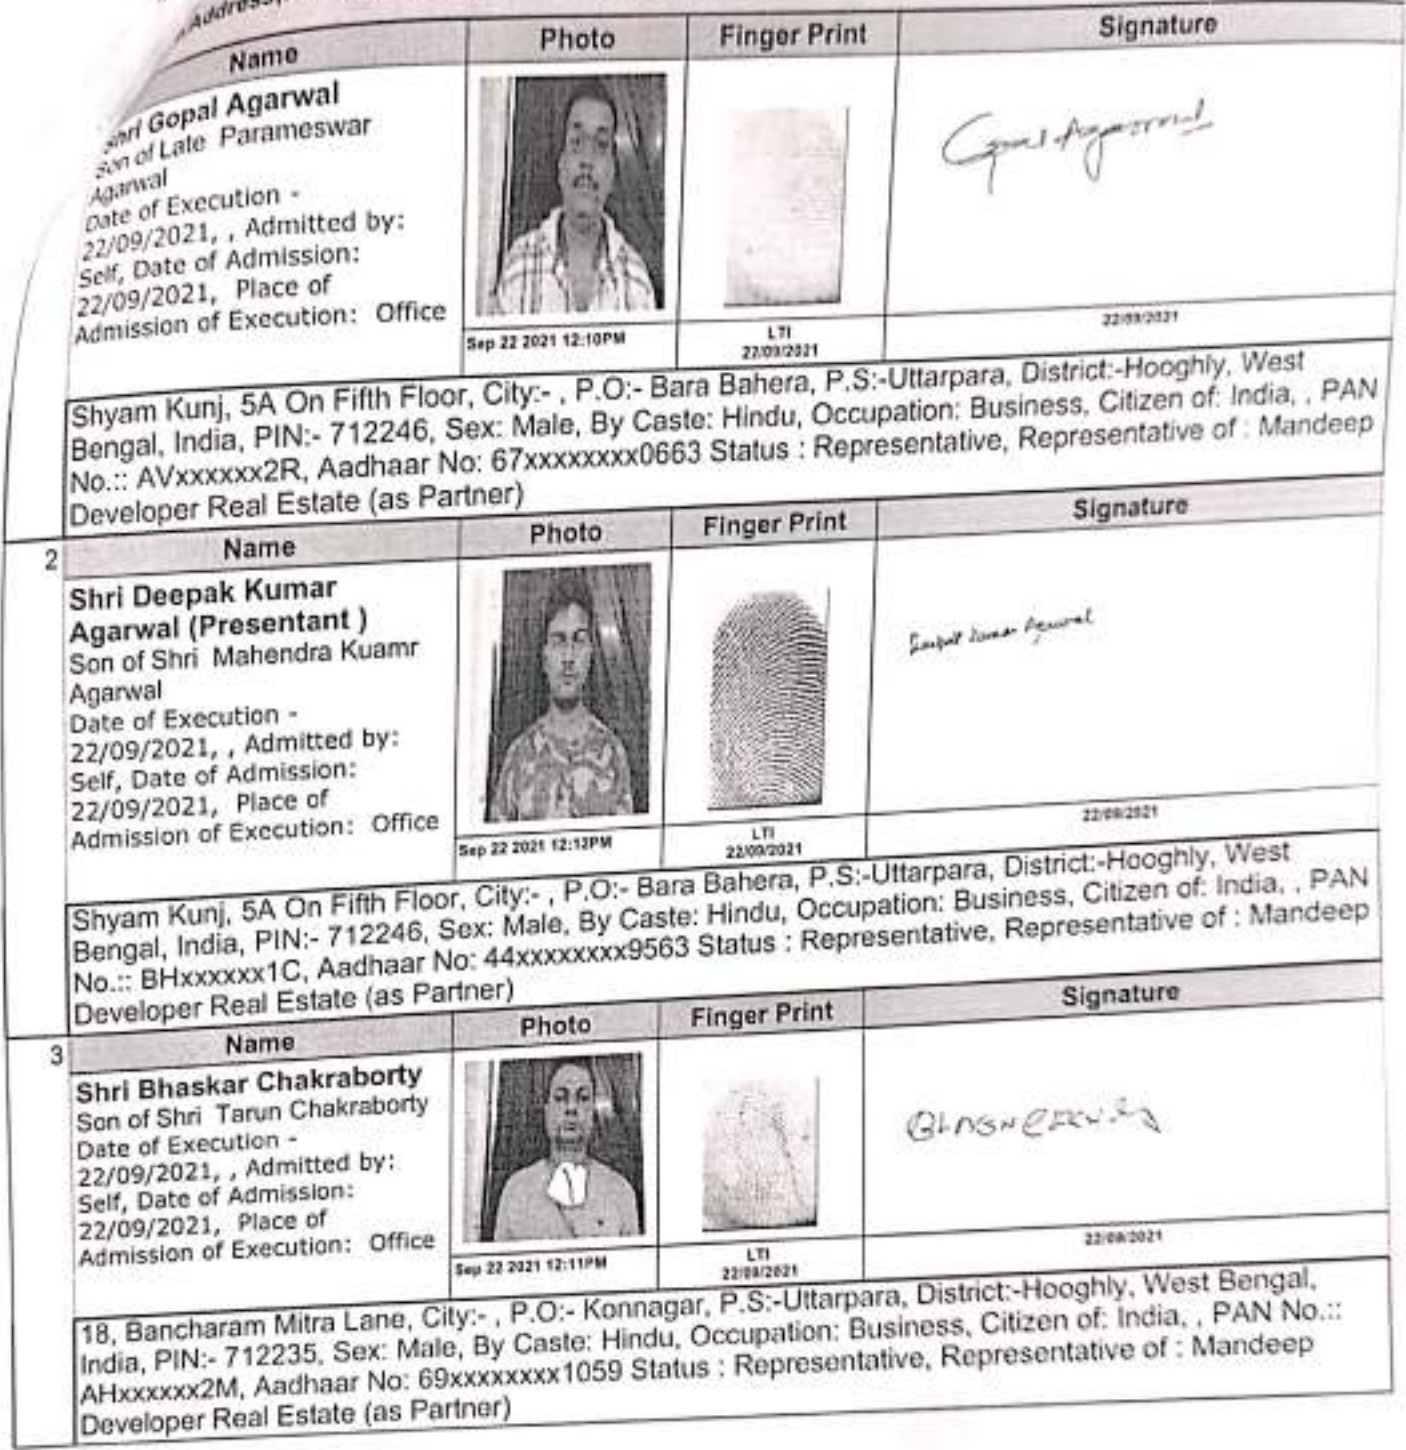 Address,
Name Photo Finger Print Signature
Shri Gopal Agarwal
Son of Late Parameswar
Agarwal
Date of Execution -
22/09/2021, , Admitted by:
Self, Date of Admission:
22/09/2021, Place of
Admission of Execution: Office
Gopal Agarwal
Sep 22 2021 12:10PM
LTI
22/09/2021
22/09/2021
Shyam Kunj, 5A On Fifth Floor, City:- , P.O:- Bara Bahera, P.S:-Uttarpara, District:-Hooghly, West
Bengal, India, PIN:- 712246, Sex: Male, By Caste: Hindu, Occupation: Business, Citizen of: India, , PAN
No.:: AVxxxxxx2R, Aadhaar No: 67xxxxxxxx0663 Status : Representative, Representative of : Mandeep
Developer Real Estate (as Partner)
2 Name Photo Finger Print Signature
Shri Deepak Kumar
Agarwal (Presentant )
Son of Shri Mahendra Kuamr
Agarwal
Date of Execution -
22/09/2021, , Admitted by:
Self, Date of Admission:
22/09/2021, Place of
Admission of Execution: Office
Deepak Kumar Agarwal
Sep 22 2021 12:12PM
LTI
22/09/2021
22/09/2021
Shyam Kunj, 5A On Fifth Floor, City:- , P.O:- Bara Bahera, P.S:-Uttarpara, District:-Hooghly, West
Bengal, India, PIN:- 712246, Sex: Male, By Caste: Hindu, Occupation: Business, Citizen of: India, , PAN
No.:: BHxxxxxx1C, Aadhaar No: 44xxxxxxxx9563 Status : Representative, Representative of : Mandeep
Developer Real Estate (as Partner)
3 Name Photo Finger Print Signature
Shri Bhaskar Chakraborty
Son of Shri Tarun Chakraborty
Date of Execution -
22/09/2021, , Admitted by:
Self, Date of Admission:
22/09/2021, Place of
Admission of Execution: Office
Sep 22 2021 12:11PM
LTI
22/09/2021
22/09/2021
18, Bancharam Mitra Lane, City:- , P.O:- Konnagar, P.S:-Uttarpara, District:-Hooghly, West Bengal,
India, PIN:- 712235, Sex: Male, By Caste: Hindu, Occupation: Business, Citizen of: India, , PAN No.::
AHxxxxxx2M, Aadhaar No: 69xxxxxxxx1059 Status : Representative, Representative of : Mandeep
Developer Real Estate (as Partner)